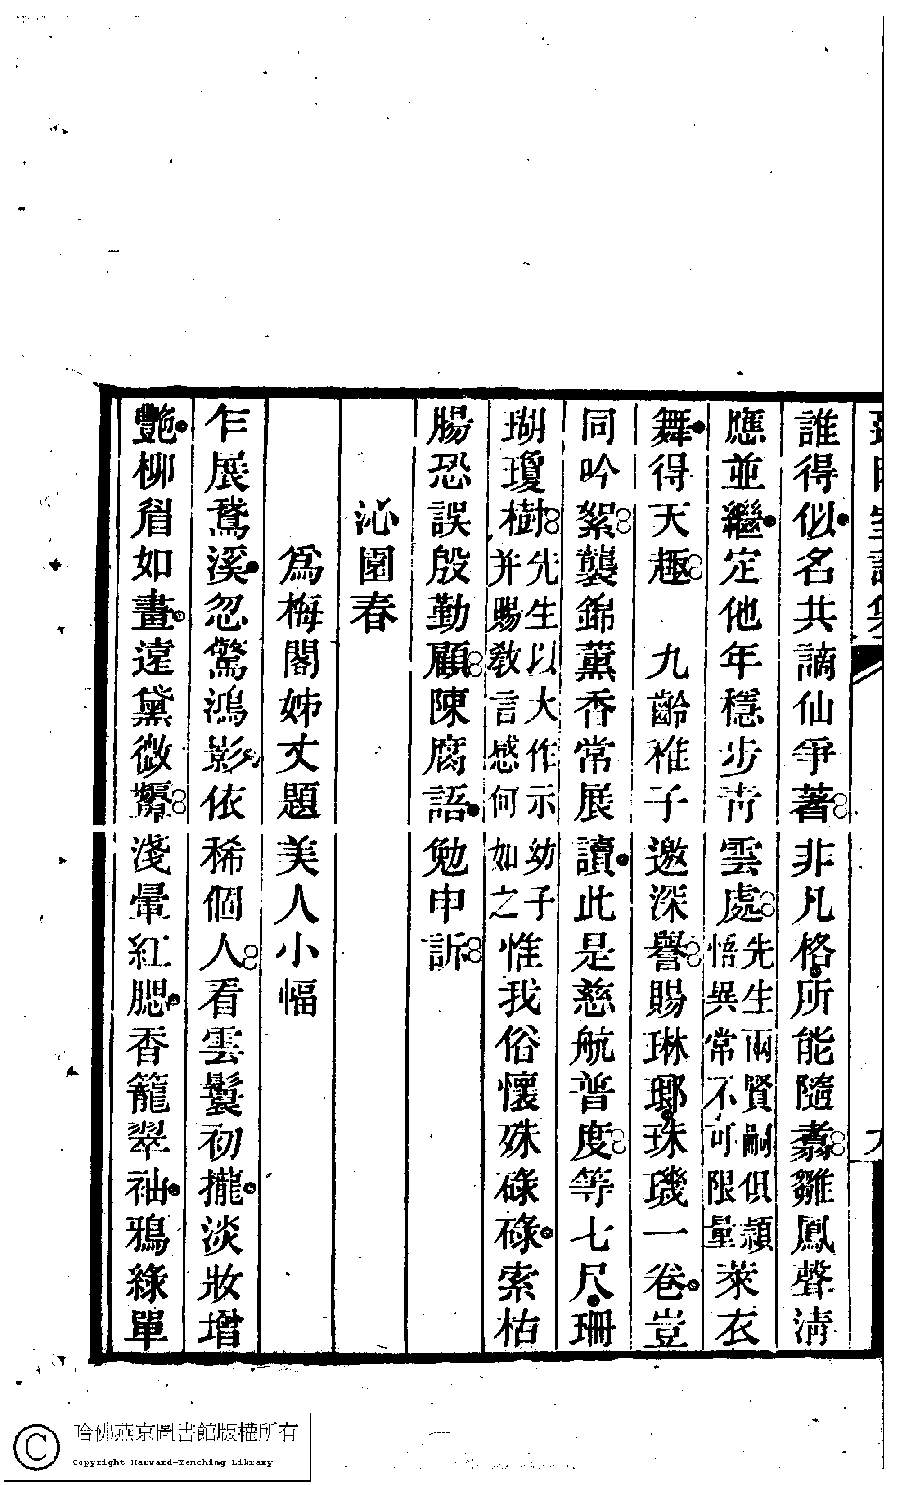 誰得似名共謫仙爭著非凡格所能隨翥雛鳳聲清
應並繼定他年穩步青雲處先生兩賢嗣俱穎悟異常不可限量萊衣
舞得天趣　九齡稚子邀深譽賜琳瑯珠璣一卷豈
同吟絮襲錦薰香常展讀此是慈航普度等七尺珊
瑚瓊樹先生以大作示幼子并賜敎言感何如之惟我俗懷殊碌碌索枯
腸恐誤殷勤顧陳腐語勉申訴
沁園春
爲梅閣姊丈題美人小幅
乍展鵞溪忽驚鴻影依稀個人看雲鬟初攏淡妝增
艷柳眉如畫遠黛微顰淺暈紅腮香籠翠袖鴉綠單
哈佛燕京圖書館版權所有
Copyright Harvard-Yenching Library